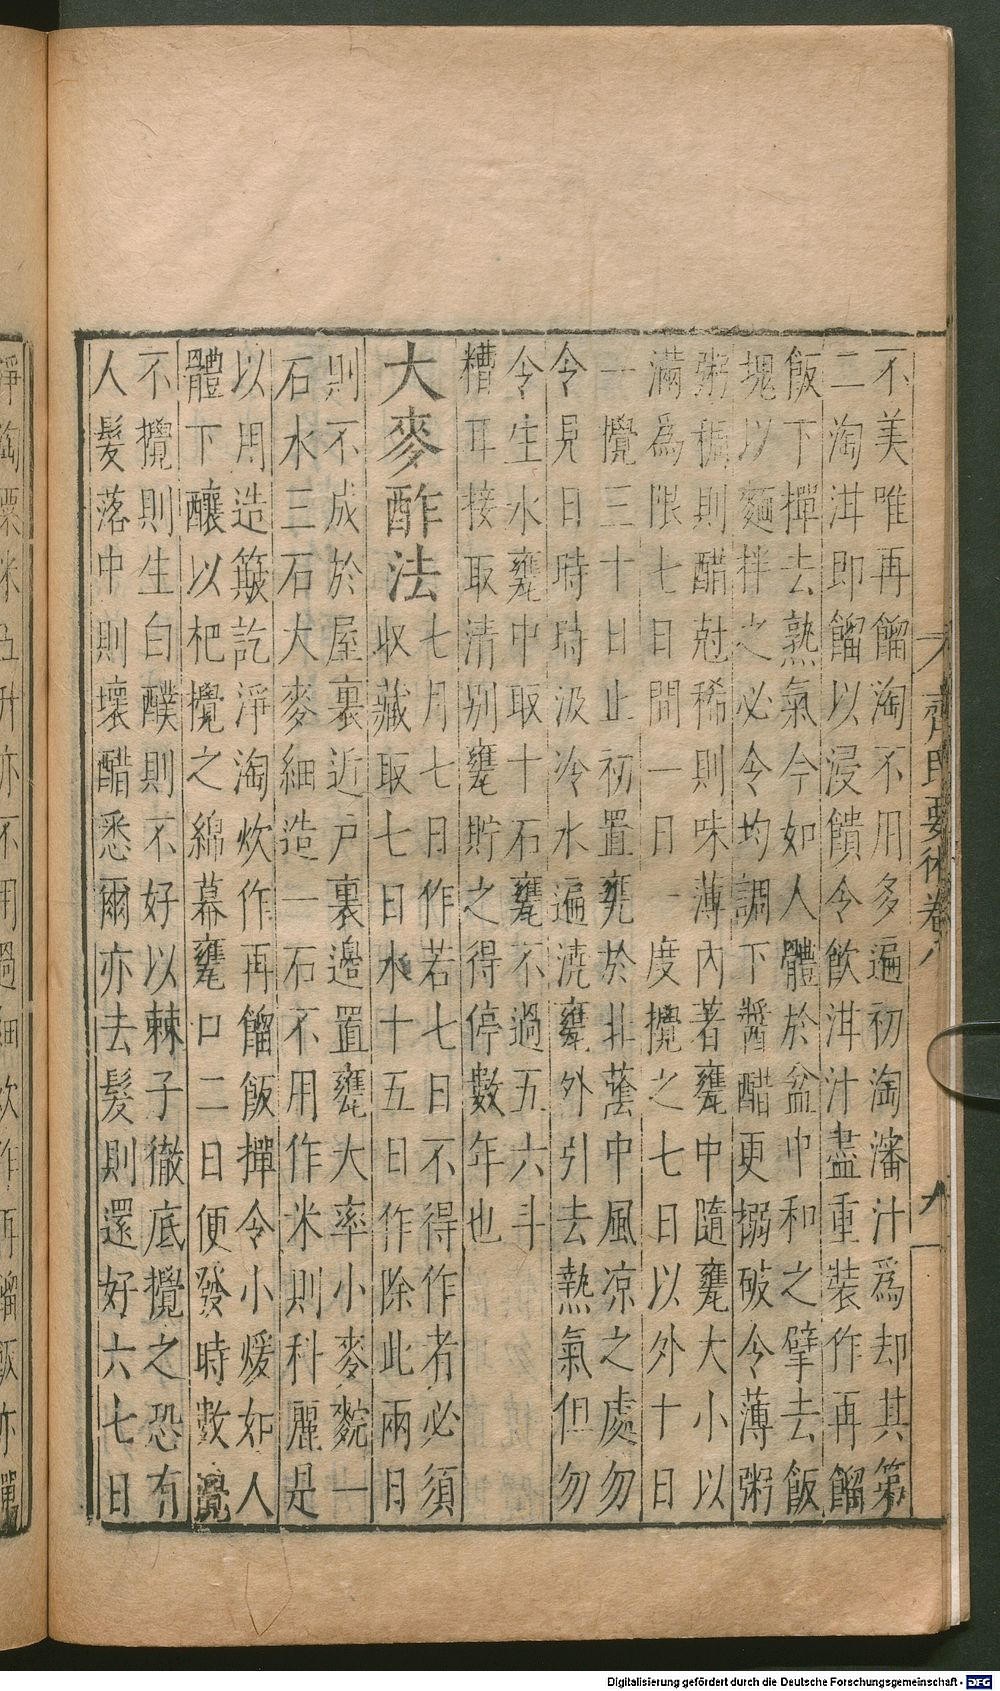 齊民要術卷八
九
不美唯再餾淘不用多遍初淘瀋汁瀉却其第
二淘泔即餾以浸饙令飲泔汁盡重裝作再餾
飯下撣去熱氣令如人體於盆中和之擘去飯
塊以麵拌之必令均調下醬醋更搦破令薄粥
粥稠則醋尅稀則味薄內著甕中隨甕大小以
滿為限七日間一日一度攪之七日以外十日
一攪三十日止初置甕於北䕃中風凉之處勿
令見日時時汲冷水遍澆甕外引去熱氣但勿
令生水甕中取十石甕不過五六斗
糟耳接取清別甕貯之得停數年也
大麥酢法
七月七日作若七日不得作者必須
收藏取七日水十五日作除此兩日
則不成於屋裏近戶裏邊置甕大率小麥䴷一
石水三石大麥細造一石不用作米則科麗是
以用造簸訖淨淘炊作再餾飯撣令小煖如人
體下釀以杷攪之綿幕甕口二日便發時數攪
不攪則生白醭則不好以棘子徹底攪之恐有
人髮落中則壞醋悉爾亦去髮則還好六七日
淨淘粟米五升亦不用過細炊作再餾飯亦撣
Digitalisierung gefördert durch die Deutsche Forschungsgemeinschaft - DFG